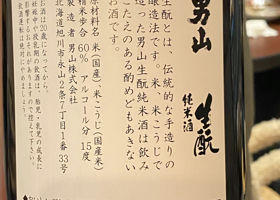 男山
生酛
純米酒
生酛とは、伝統的な手造りの
醸造法です。米、米こうじで
造った男山生酛純米酒は飲み
ごたえのある酌めどもあきない
お酒です。
原材料名 米(国産)、米こうじ(国産米)
精米歩合 60% アルコール分 15度
製造者 男山株式会社
北海道旭川市永山2条7丁目1番33号
お酒は20歳になってから。
妊娠中や授乳期の飲酒は、胎児・乳児の成長に
飲酒運転は絶対にやめましょう。